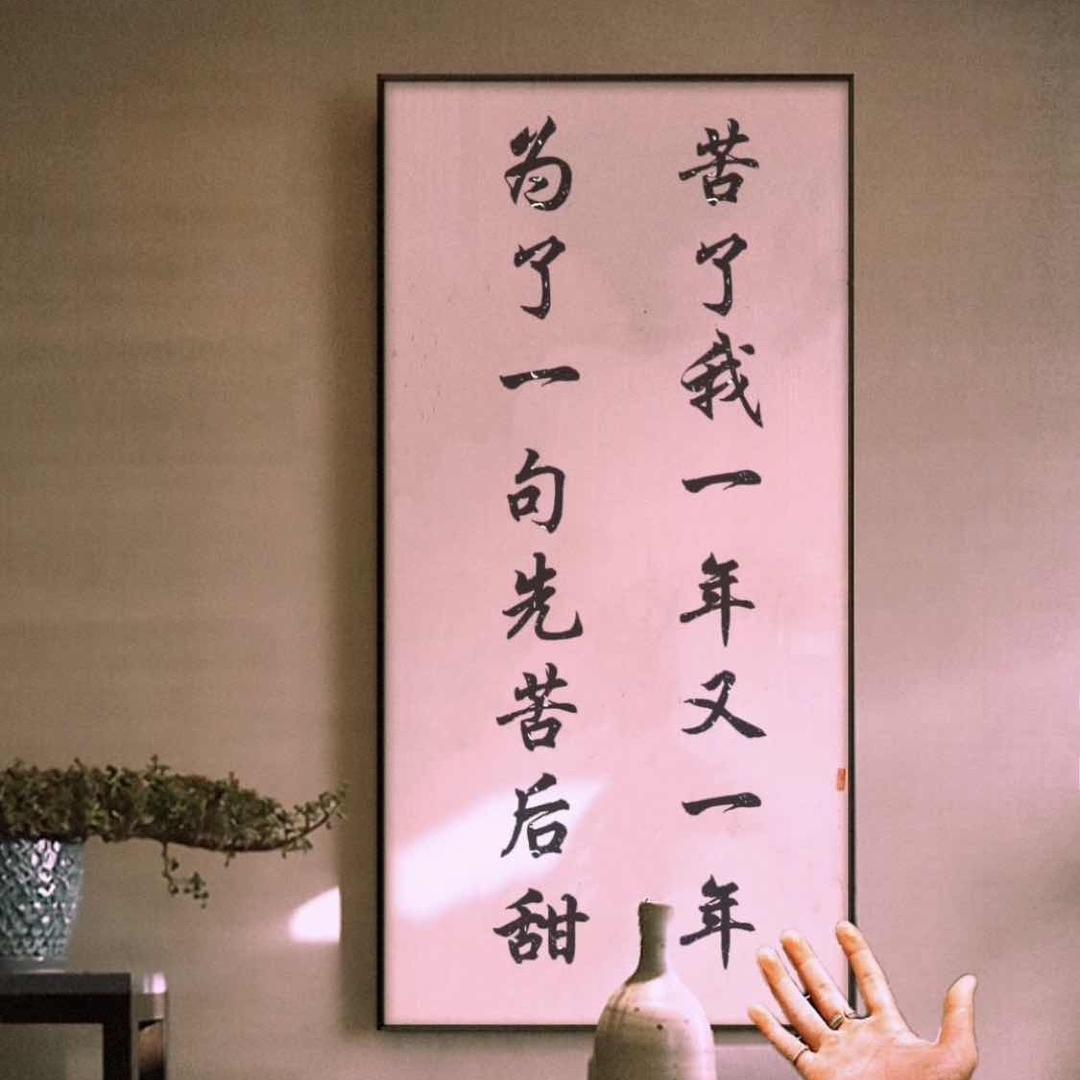 苦了我一年又一年
为了一句先苦后甜